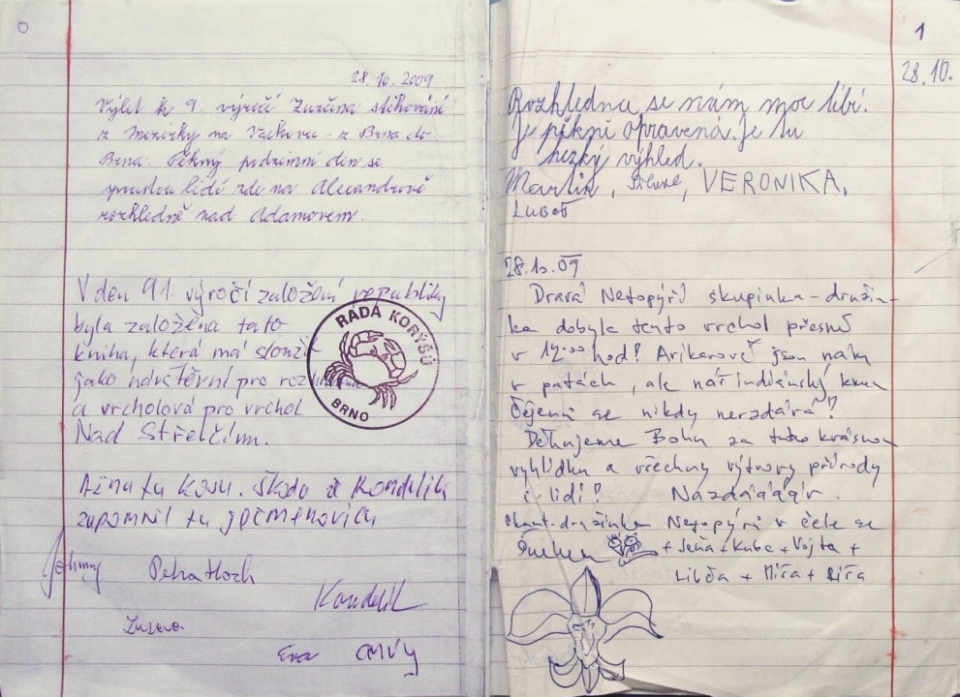 0
28.10.2009
Výlet k 9. výročí
z na Václava z Brna do
Brna. Pěkný podzimní den se
spoustou lidí zde na Alexandrově
rozhledně nad Adamovem.
V den 91. výročí založení republiky
byla založena tato
kniha, která má slouži
jako návštěvní pro roz
a vrcholová pro vrchol
Nad Střelčím.
RADA KORÝŠŮ
BRNO
tu kosu. Škoda že Kondelík
zapomnil tu
Johnny Petra Hoch
Kondelík
Zuzana
Eva
1
28.10.
Rozhledna se nám moc líbí.
Je pěkně opravená. Je tu
hezký výhled.
Martin, VERONIKA,
Luboš
28.10.09
Dravá Netopýří skupinka - družin-
ka dobyla tento vrchol přesně
v 12:00 hod! jsou nám
v patách, ale náš indiánský kmen
se nikdy nevzdává!
Děkujeme Bohu za tuto krásnou
vyhlídku a všechny výtvory přírody
i lidí! Nazdááááár.
družinka Netopýři v čele se
+ Jeňa + Kuba + Vojta +
+ Míra + Ríša